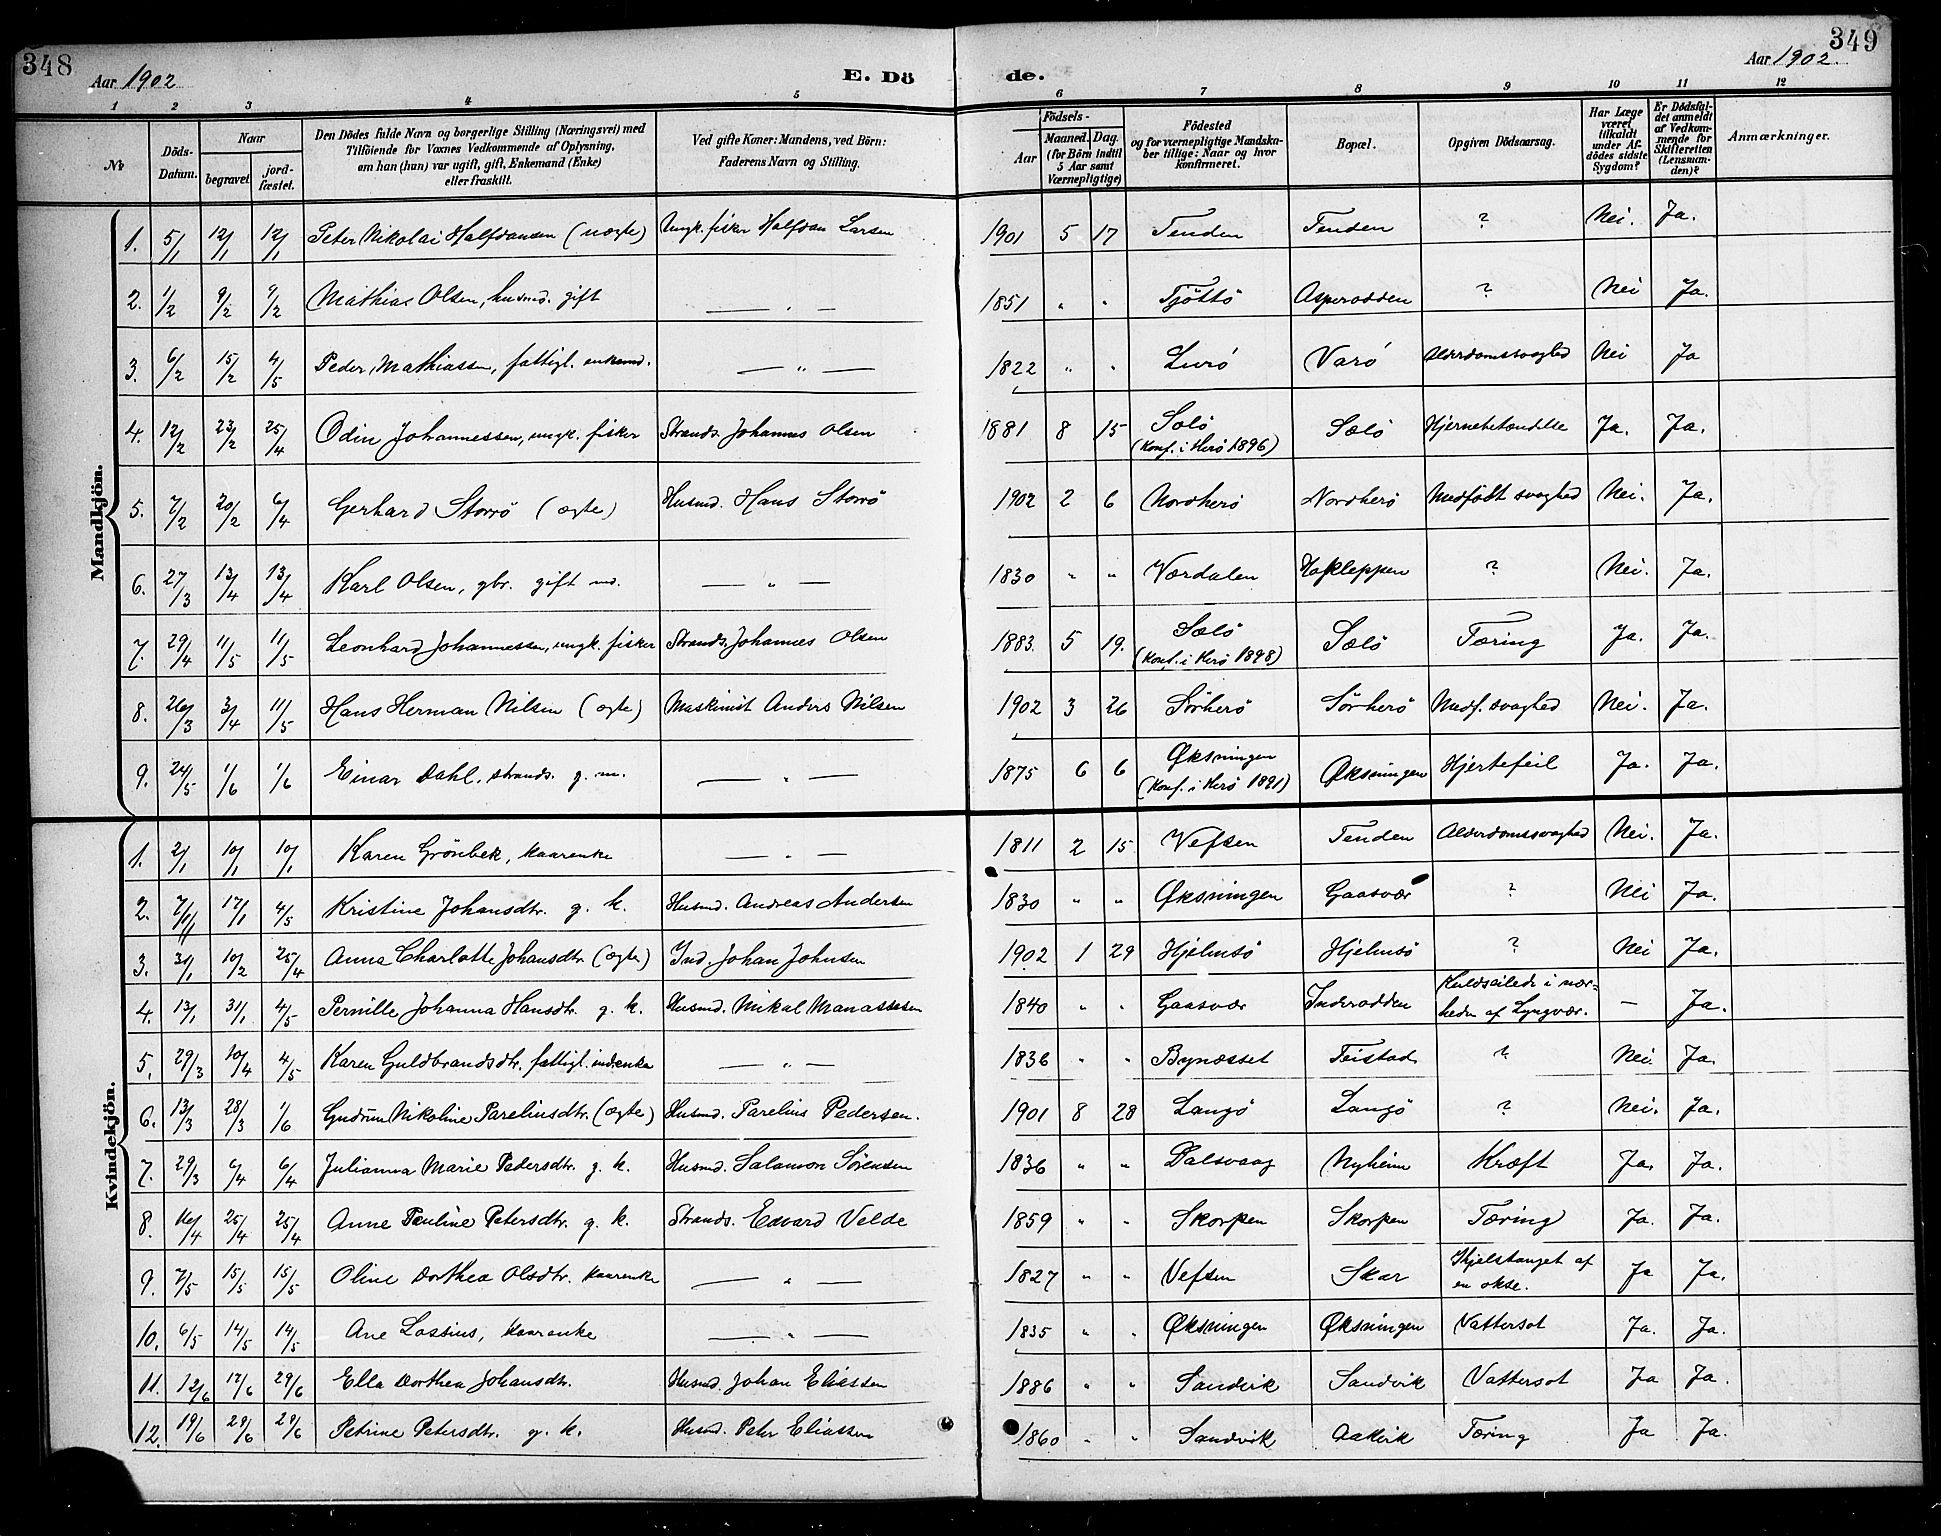 348
349
Aar 1902
E. Dö
de.
Aar 1902.
1 2 3 4 5 6 7 8 9 10 11 12
No
Döds-Datum.
Naar begravet jord-fæstet.
Den Dödes fulde Navn og borgerlige Stilling (Næringsvei) med Tilföiende for Voxnes Vedkommende af Oplysning, om han (hun) var ugift, gift, Enkemand (Enke) eller fraskilt.
Ved gifte Koner: Mandens, ved Börn: Faderens Navn og Stilling.
Födsels- Aar Maaned. Dag. (for Börn indtil 5 Aar samt Værnepligtige)
Födested og for værnepligtige Mandskaber tillige: Naar og hvor konfirmeret.
Bopæl.
Opgiven Dödsaarsag.
Har Læge været tilkaldt under Afdödes sidste Sygdom?
Er Dödsfaldet anmeldt af Vedkommende for Skifteretten (Lensmanden)?
Anmærkninger.
Mandkjön.
1. 5/1 12/1 12/1 Peter Nikolai Halfdansen (uægte) Ungk. fisker Halfdan Larsen 1901 5 17 Tenden Tenden ? Nei. Ja.
2. 1/2 9/2 9/2 Mathias Olsen, husmd. gift — " — 1851 " " Tjöttö Asperodden ? Nei Ja.
3. 6/2 15/2 4/5 Peder Mathiassen, fattigl. enkemd. — " — 1822 " " Lurö Varö Alderdomssvaghed Nei Ja
4. 12/2 23/2 25/4 Odin Johannessen, ungk. fisker Strands. Johannes Olsen 1881 8 15 Sølö (Konf. i Herö 1896) Sælö Hjernebetændelse Ja. Ja.
5. 7/2 20/2 6/4 Gerhard Storrö (ægte) Husmd. Hans Storrö 1902 2 6 Nordherö Nordherö Medfödt svaghed Nei. Ja.
6. 27/3 13/4 13/4 Karl Olsen, gbr. gift md. — " — 1830 " " Værdalen Hofkleppen ? Nei. Ja.
7. 29/4 11/5 11/5 Leonhard Johannessen, ungk. fisker Strands. Johannes Olsen 1883. 5 19. Sælö (Konf. i Herö 1898) Sælö Tæring Ja. Ja.
8. 26/3 3/4 11/5 Hans Herman Nilsen (ægte) Maskinist Anders Nilsen 1902 3 26 Sörherö Sörherö Medf. svaghed Nei. Ja.
9. 24/5 1/6 1/6 Einar Dahl, strands. g. m. — " — 1875 6 6 Øksningen (Konf. i Herö 1891) Øksningen Hjertefeil Ja. Ja.
Kvindekjön.
1. 2/1 10/1 10/1 Karen Grönbek, kaarenke — " — 1811 2 15 Vefsen Tenden Alderdomssvaghed Nei. Ja.
2. 7/1 17/1 4/5 Kristine Johansdtr. g. k. Husmd. Andreas Andersen 1830 " " Øksningen Gaasvær ? Nei Ja.
3. 31/1 10/2 25/4 Anna Charlotte Johansdtr. (ægte) Ind. Johan Johnsen 1902 1 29 Hjelmsö Hjelmsö ? Nei Ja.
4. 13/1 31/1 4/5 Pernille Johanna Hansdtr. g. k. Husmd. Mikal Manassesen 1840 " " Gaasvær Inderodden Kuldseilede i nær-heden af Lyngvær. — Ja.
5. 29/3 10/4 4/5 Karen Guldbrandsdtr. fattigl. indr.enke — " — 1836 " " Bynæsset Teistad ? Nei. Ja.
6. 13/3 28/3 1/6 Gudrun Nikoline Pareliusdtr. (ægte) Husmd. Parelius Pedersen. 1901 8 28 Langö Langö ? Nei. Ja.
7. 29/3 6/4 6/4 Julianna Marie Pedersdtr. g. k. Husmd. Salamon Sörensen 1836 " " Dalsvaag Nyheim Kræft Ja. Ja.
8. 16/4 25/4 25/4 Anne Pauline Petersdtr. g. k. Strands. Edvard Velde 1859 " " Skorpen Skorpen Tæring Ja. Ja.
9. 7/5 15/5 15/5 Oline Dorthea Olsdtr. kaarenke — " — 1827 " " Vefsen Skar Ihjelstanget af en okse. Ja Ja.
10. 6/5 14/5 14/5 Ane Lossius, kaarenke — " — 1835 " " Øksningen Øksningen Vattersot Ja. Ja.
11. 12/6 17/6 29/6 Ella Dorthea Johansdtr. Husmd. Johan Eliassen 1886 " " Sandvik Sandvik Vattersot Ja Ja.
12. 19/6 29/6 29/6 Petrine Petersdtr. g. k. Husmd. Peter Eliassen 1860 " " Sandvik Aakvik Tæring Ja Ja.